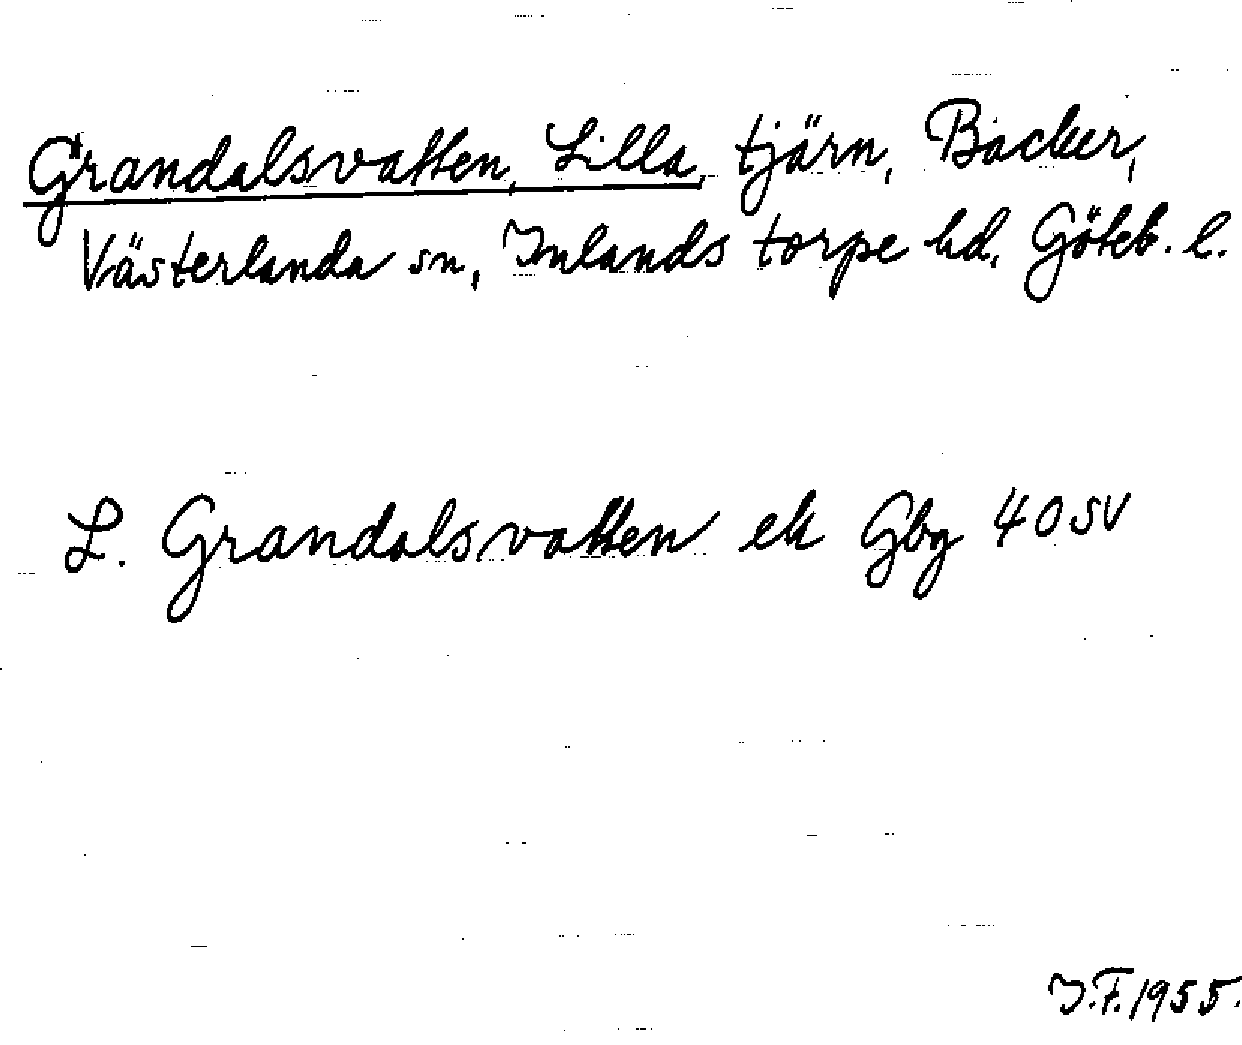 Grandalsvatten, Lilla, tjärn, Backer,
Västerlanda sn, Inlands torpe hd, Göteb. l.
L. Grandalsvatten ek Gbg 40 SV
I.F. 1955.